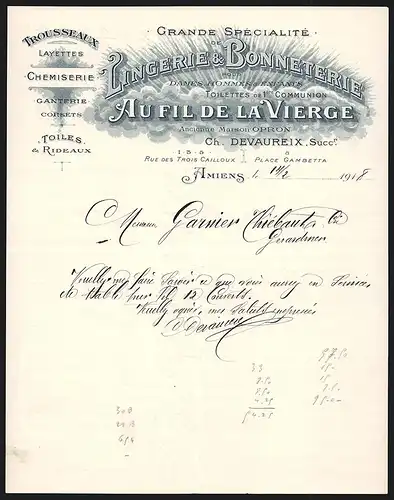 TROUSSEAUX
LAYETTES
CHEMISERIE
GANTERIE
CORSETS
TOILES
& RIDEAUX
GRANDE SPÉCIALITÉ
DE
LINGERIE & BONNETERIE
POUR
DAMES, HOMMES & ENFANTS
TOILETTES DE 1ÈRE COMMUNION
AU FIL DE LA VIERGE
Ancienne Maison OPRON
CH. DEVAUREIX, SUCCR.
1 · 3 · 5 8
RUE DES TROIS CAILLOUX PLACE GAMBETTA
AMIENS, 1918
Garnier Thiébaut & Cie
Gérardmer
Veuillez me faire savoir ce que vous auriez en Services
de table pur fil 12 Couverts.
Veuillez agréer, mes Saluts empressés
Devaureix